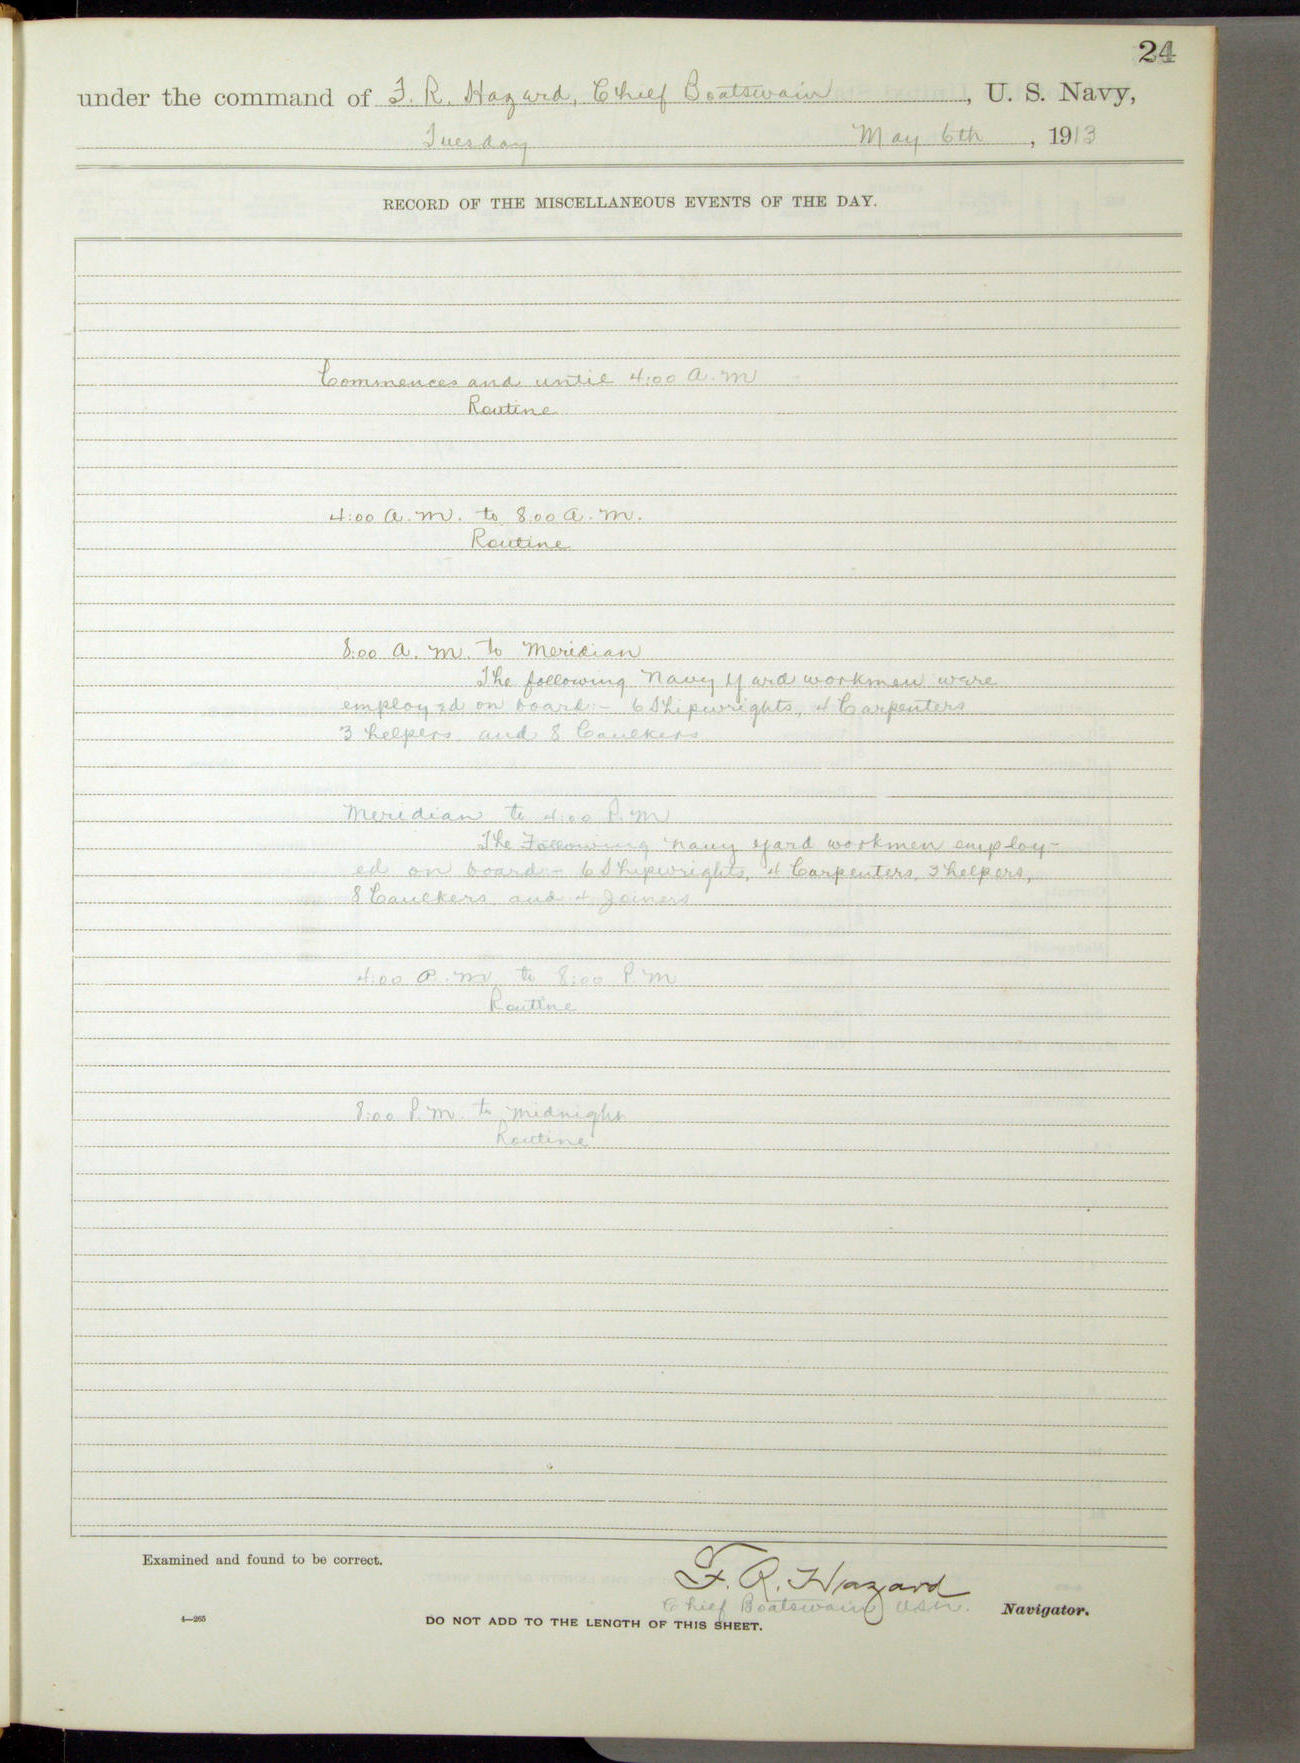 24
under the command of F. R. Hazard, Chief Boatswain, U. S. Navy,
Tuesday May 6th, 1913
RECORD OF THE MISCELLANEOUS EVENTS OF THE DAY.
Commences and until 4:00 A.M
Routine
4:00 A.M. to 8:00 A.M.
Routine
8:00 A.M. to Meridian
The following Navy Yard workmen were
employed on board:- 6 Shipwrights, 4 Carpenters
3 helpers and 8 Caulkers
Meridian to 4:00 P.M
The Following Navy Yard workmen employ-
ed on board:- 6 Shipwrights, 4 Carpenters, 3 helpers,
8 Caulkers and 4 Joiners
4:00 P.M. to 8:00 P.M
Routine
8:00 P.M. to Midnight
Routine
Examined and found to be correct.
F. R. Hazard
Chief Boatswain, USN. Navigator.
4—265
DO NOT ADD TO THE LENGTH OF THIS SHEET.